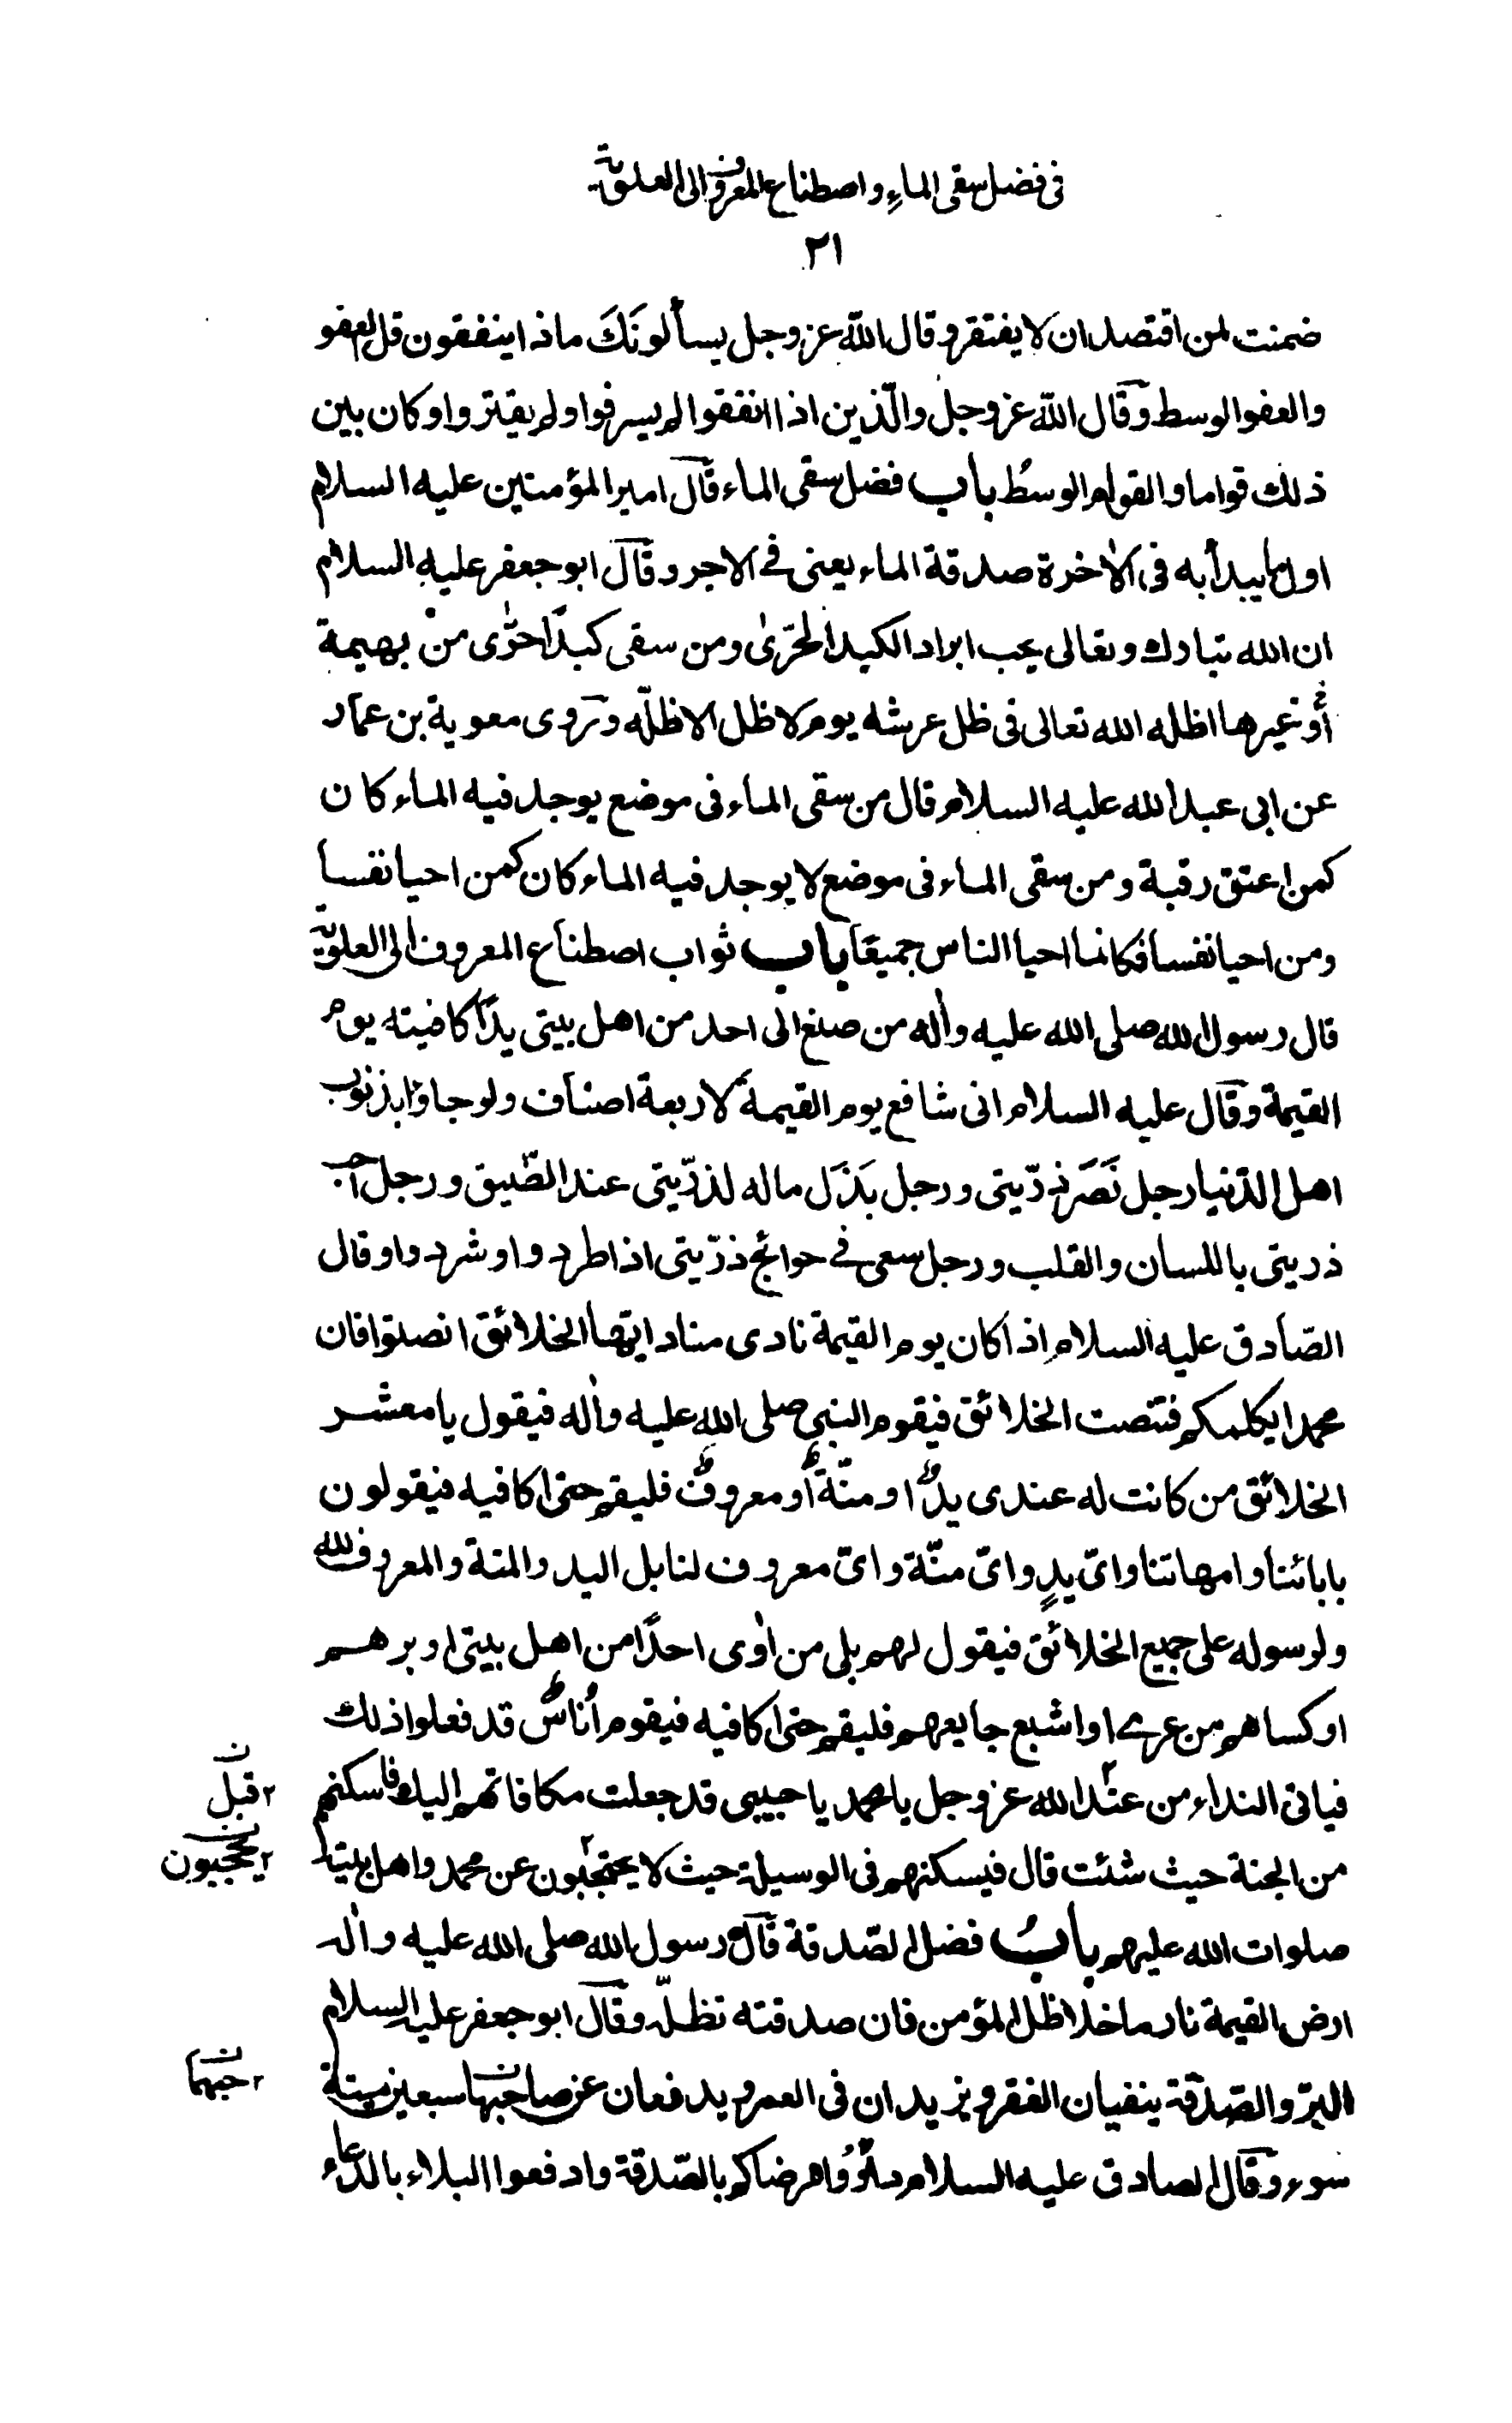 فی فضل سقی الماءِ و اصطناع المعروف الی العلویة
٢١
ضمنت لمن اقتصد ان لا یفتقر و قال اللّه عز و جل یسألونَكَ ما ذا ینفقون قل العفو
و العفو الوسط و قال اللّه عز و جل و الّذین اذا انفقوا لم یسرفوا و لم یقتروا و كان بین
ذلك قواما و القوام الوسطُ باب فضل سقی الماء قال امیر المؤمنین علیه السلام
اول ما یبدأ به فی الاٰخرة صدقة الماء یعنی فی الاجر و قال ابو جعفر علیه السلام
ان الله تبارك و تعالی یحب ابراد الكبد الحرّیٰ و من سقی كبدًا حرّٰی من بهیمة
أو غیرها اظله الله تعالی فی ظل عرشه یوم لا ظل الا ظلّه و روی معویة بن عمار
عن ابی عبد الله علیه السلام قال من سقی الماء فی موضع یوجد فیه الماء كان
كمن اعتق رقبة و من سقی الماء فی موضع لا یوجد فیه الماء كان كمن احیا نفسا
و من احیا نفسا فكانما احیا الناس جمیعًا باب ثواب اصطناع المعروف الی العلویة
قال رسول الله صلی الله علیه و اٰله من صنع الی احد من اهل بیتی یدًا كافیته یوم
القیمة و قال علیه السلام انی شافع یوم القیمة لاربعة اصناف و لو جاؤا بذنوب
اهل الدّنیا رجل نَصَرَ ذرّیتی و رجل بَذَلَ ماله لذرّیتی عند الضّیق و رجل احب
ذریتی باللسان و القلب و رجل سعی فی حوائج ذرّیتی اذا طردوا و شردوا و قال
الصّادق علیه السلام اذا كان یوم القیمة نادی مناد ایّها الخلائق انصتوا فان
محمدا یكلمكم فتنصت الخلائق فیقوم النبی صلی الله علیه و اٰله فیقول یا معشر
الخلائق من كانت له عندی یدٌ او منّةٌ أو معروفٌ فلیقم حتی اكافیه فیقولون
بابائنا و امهاتنا و ایّ یدٍ و ایّ منّة و ایّ معروف لنا بل الید و المنة و المعروف لله
و لرسوله علی جمیع الخلائق فیقول لهم بلی من اٰوی احدًا من اهل بیتی او برهم
او كساهم من عری او اشبع جایعهم فلیقم حتی اكافیه فیقوم أُناسٌ قد فعلوا ذلك
فیاتی النداء من عند الله عز و جل یا محمد یا حبیبی قد جعلت مكافاتهم الیك فاسكنهم
٢ قبل ن
من الجنة حیث شئت قال فیسكنهم فی الوسیلة حیث لا یحتجبون عن محمد و اهل بیته
٢ یحجبون ن
صلوات الله علیهم بابُ فضل الصّدقة قال رسول الله صلی الله علیه و اٰله
ارض القیمة نار ما خلا ظل المؤمن فان صدقته تظلّه و قال ابو جعفر علیه السلام
البرّ و الصّدقة ینفیان الفقر و یزیدان فی العمر و یدفعان عن صاحبها سبعین میتة
٢ حبهما ن
سوء و قال الصادق علیه السلام داوُوا مرضاكم بالصّدقة و ادفعوا البلاء بالدّعاء